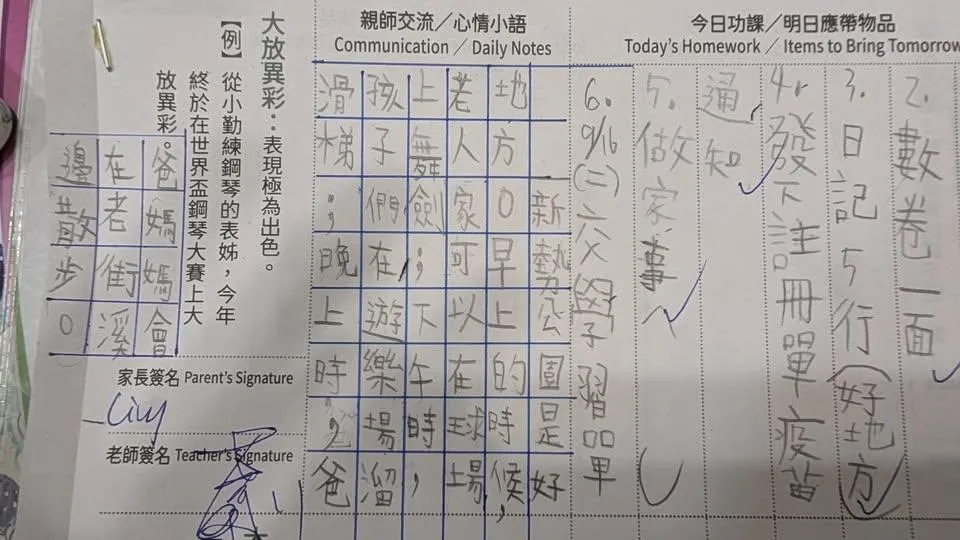 今日功課／明日應帶物品
Today's Homework／Items to Bring Tomorrow
2.數卷一面
3.日記5行(好地方)
4.發下註冊單疫苗
通知
5.做家事
6.9/16(二)交學習單
親師交流／心情小語
Communication／Daily Notes
新勢公園是好
地方。早上的時候，
老人家可以在球場
上舞劍；下午時，
孩子們在遊樂場溜
滑梯；晚上時，爸
爸媽媽會
在老街溪
邊散步。
大放異彩：表現極為出色。
【例】從小勤練鋼琴的表姊，今年
終於在世界盃鋼琴大賽上大
放異彩。
家長簽名 Parent's Signature
老師簽名 Teacher's Signature